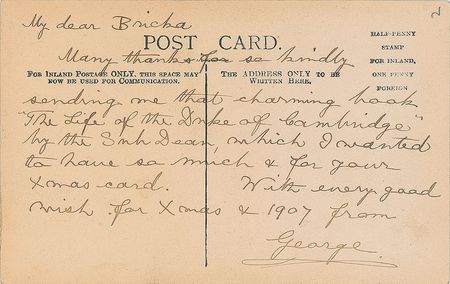 My dear Bricka
POST CARD.
HALF-PENNY
STAMP
FOR INLAND,
ONE PENNY
FOREIGN
Many thanks for so kindly
FOR INLAND POSTAGE ONLY, THIS SPACE MAY
NOW BE USED FOR COMMUNICATION.
THE ADDRESS ONLY TO BE
WRITTEN HERE.
sending me that charming book
"The Life of the Duke of Cambridge"
by the Sub Dean, which I wanted
to have so much & for your
Xmas card. With every good
wish for Xmas & 1907 from
George.